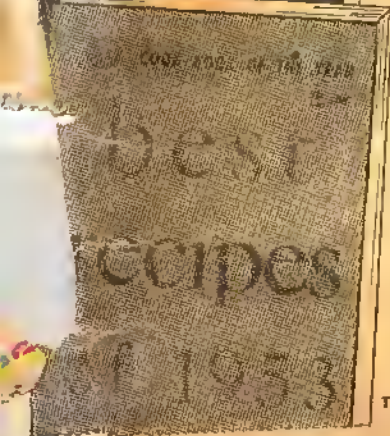 COOK BOOK OF THE YEAR
best
recipes
of 1953
T